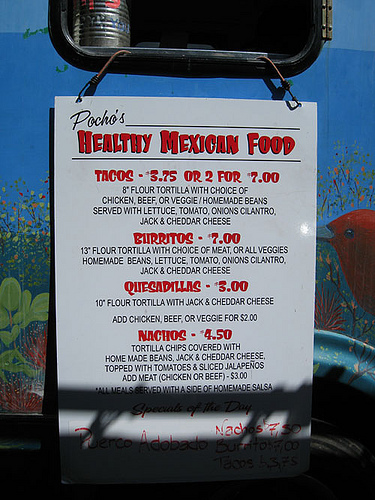 Pocho's
HEALTHY MEXICAN FOOD
TACOS - $3.75 OR 2 FOR $7.00
8" FLOUR TORTILLA WITH CHOICE OF
CHICKEN, BEEF, OR VEGGIE / HOMEMADE BEANS
SERVED WITH LETTUCE, TOMATO, ONIONS CILANTRO,
JACK & CHEDDAR CHEESE
BURRITOS - $7.00
13" FLOUR TORTILLA WITH CHOICE OF MEAT, OR ALL VEGGIES
HOMEMADE BEANS, LETTUCE, TOMATO, ONIONS CILANTRO,
JACK & CHEDDAR CHEESE
QUESADILLAS - $3.00
10" FLOUR TORTILLA WITH JACK & CHEDDAR CHEESE
ADD CHICKEN, BEEF, OR VEGGIE FOR $2.00
NACHOS - $4.50
TORTILLA CHIPS COVERED WITH
HOME MADE BEANS, JACK & CHEDDAR CHEESE,
TOPPED WITH TOMATOES & SLICED JALAPEÑOS
ADD MEAT (CHICKEN OR BEEF) - $3.00
*ALL MEALS SERVED WITH A SIDE OF HOMEMADE SALSA
Specials of the Day
Nachos 7/50
Puerco Adobado Burrito 7/00
Tacos 3/75